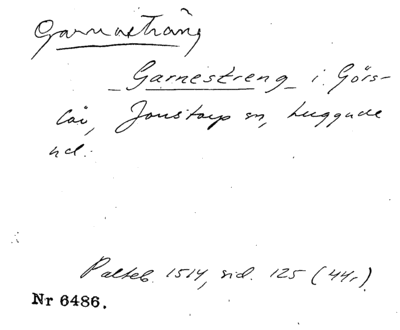 Garnasträng
Garnestreng i Görs-
löv, Jonstorp sn, Luggude
hd.
Palteb. 1514, sid. 125 (44r)
Nr 6486.